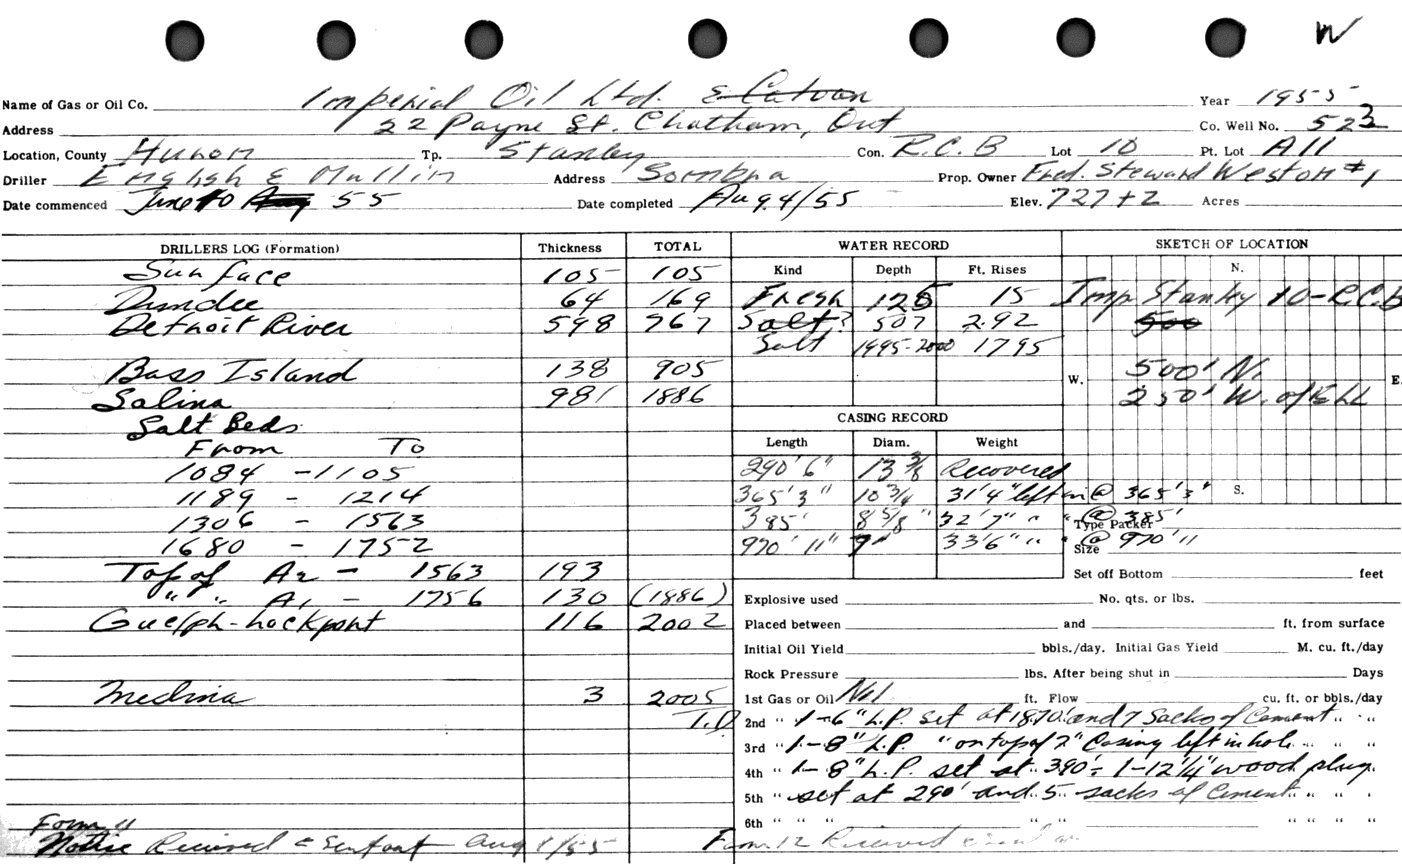 W
Name of Gas or Oil Co. Imperial Oil Ltd. & Catoon
Year 1955
Address 22 Payne St. Chatham, Ont
Co. Well No. 523
Location, County Huron Tp. Stanley Con. R.C.B Lot 10 Pt. Lot All
Driller English & Mullin Address Sombra Prop. Owner Fred. Steward Weston #1
Date commenced June 10 Aug 55 Date completed Aug 4/55 Elev. 727+2 Acres
DRILLERS LOG (Formation) Thickness TOTAL
Surface 105 105
Dundee 64 169
Detroit River 598 767
Bass Island 138 905
Salina 981 1886
Salt Beds
From To
1084 - 1105
1189 - 1214
1306 - 1563
1680 - 1752
Top of A2 - 1563 193
" " A1 - 1756 130 (1886)
Guelph-Lockport 116 2002
Medina 3 2005
T.D
WATER RECORD
Kind Depth Ft. Rises
Fresh 125 15
Salt? 507 292
Salt 1995-2000 1795
CASING RECORD
Length Diam. Weight
290' 6" 13 3/8 Recovered
365' 3" 10 3/4 31'4" left in @ 365'3"
385' 8 5/8" 32'7" " " @ 385'
970' 11" 7" 33'6" " " @ 970'11
SKETCH OF LOCATION
N.
Imp Stanley 10-R.C.B
500
500' N.
W. E.
250' W. of E LL
S.
Type Packer
Size
Set off Bottom feet
Explosive used No. qts. or lbs.
Placed between and ft. from surface
Initial Oil Yield bbls./day. Initial Gas Yield M. cu. ft./day
Rock Pressure lbs. After being shut in Days
1st Gas or Oil Nil ft. Flow cu. ft. or bbls./day
2nd " 1-6" L.P. set at 1870' and 7 Sacks of Cement " "
3rd " 1-8" L.P. " on top of 7" Casing left in hole " " "
4th " 1-8" L.P. set at 390'- 1-12 1/4" wood plug
5th " set at 290' and 5 sacks of Cement " " "
6th " " " " " " " " "
Form 11
Notice Received Aug /55
Form 12 Received